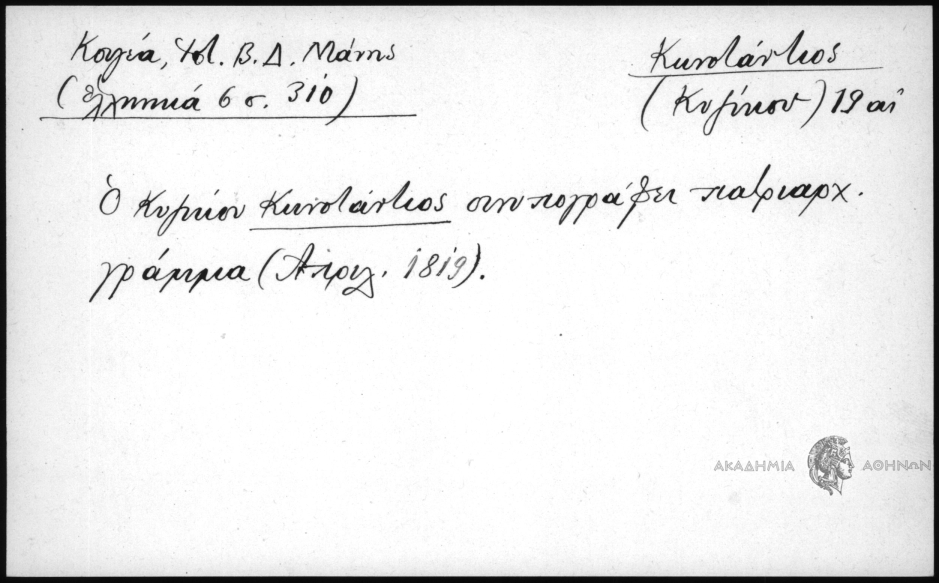 Κουγέα, Ἱστ. Β. Δ. Μάνης
(Ἑλληνικά 6 σ. 310)
Κωνστάντιος
(Κυζίκου) 19 αἰ
Ὁ Κυζίκου Κωνστάντιος συνυπογράφει πατριαρχ.
γράμμα (Ἀπριλ. 1819).
ΑΚΑΔΗΜΙΑ ΑΘΗΝΩΝ